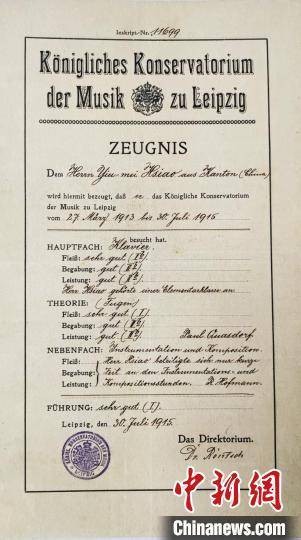 Inskript.-Nr. 11699
Königliches Konservatorium
der Musik zu Leipzig
ZEUGNIS
Dem Herrn Yiu mei Hsiao aus Kanton (China)
wird hiermit bezeugt, daß er das Königliche Konservatorium
der Musik zu Leipzig
vom 27. März 1913 bis 30. Juli 1915
besucht hat.
HAUPTFACH: Klavier
Fleiß: sehr gut
Begabung: gut
Leistung: gut
Herr Hsiao gehörte einer Elementarklasse an
THEORIE: (Fugen)
Fleiß: sehr gut (I)
Begabung: gut
Leistung: gut Paul Quasdorf
NEBENFACH: Instrumentation und Komposition
Fleiß: Herr Hsiao beteiligte sich nur kurze
Begabung: Zeit an den Instrumentations- und
Leistung: Kompositionsstunden. R. Hofmann
FÜHRUNG: sehr gut (I).
Leipzig, den 30. Juli 1915.
Das Direktorium.
Dr. Röntsch
中新网
Chinanews.com